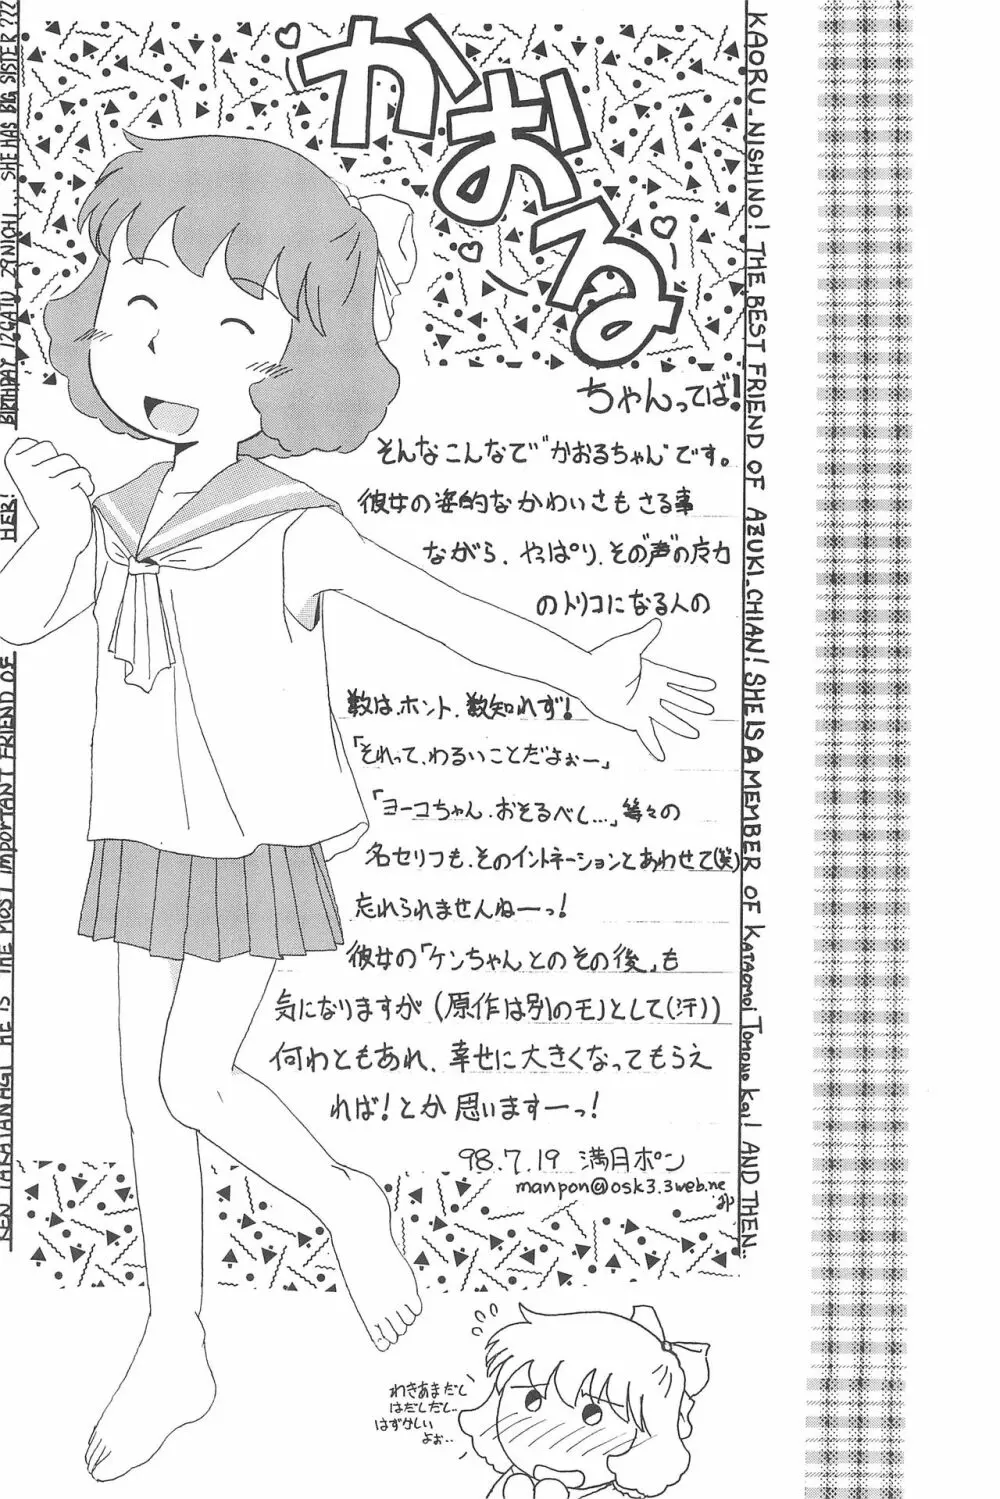 かおる
ちゃんってば!
そんなこんなで"かおるちゃん"です。
彼女の姿的なかわいさもさる事
ながら、やっぱり、その"声"の魔力
のトリコになる人の
数は、ホント、数知れず!
「それって、わるいことだよぉー」
「ヨーコちゃん、おそるべし…」等々の
名セリフも、そのイントネーションとあわせて(笑)
忘れられませんねーっ!
彼女の「ケンちゃんとのその後」も
気になりますが(原作は別のモノとして(汗))
何わともあれ、幸せに大きくなってもらえ
れば!とか思いますーっ!
98.7.19 満月ポン
manpon@osk3.3web.ne
.jp
わきあまだし
はだしだし..
はずかしい
よぉ..
KAORU_NISHINO! THE BEST_FRIEND OF AZUKI_CHIAN! SHE IS A MEMBER OF KATAOMOI TOMONO KAI! AND THEN..
KEN TAKAYANAGI HE IS THE MOST IMPORTANT FRIEND OF
HER!
BIRTHDAY 12GATU_29NICHI.. SHE HAS BIG SISTER???